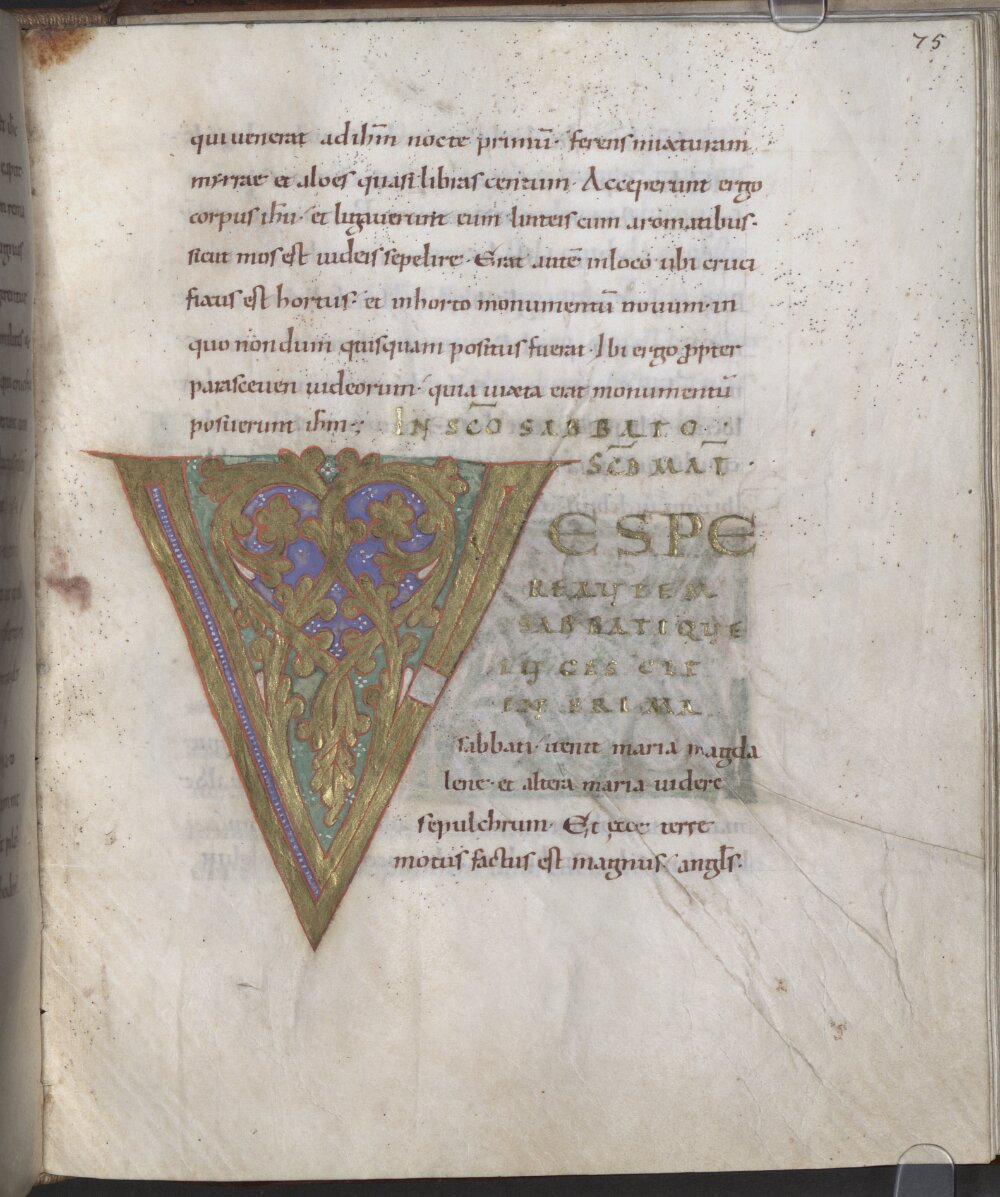 75
qui venerat ad ihm̄ nocte primū· ferens mixturam
myrrae et aloes quasi libras centum· Acceperunt ergo
corpus ihū· et ligaverunt eum linteis cum aromatibus·
sicut mos est iudeis sepelire· Erat autē in loco ubi cruci
fixus est hortus· et in horto monumentū novum· in
quo nondum quisquam positus fuerat· Ibi ergo ꝓpter
parasceven iudeorum· quia iuxta erat monumentū
posuerunt ihm̄·;
IN SC̄O SABBATO
SC̄D MAT̄·
VESPE
RE AUTEM
SABBATI QUE
LUCESCIT
IN PRIMA
sabbati· venit maria magda
lene· et altera maria videre
sepulchrum· Et ecce terre
motus factus est magnus· angl̄s·